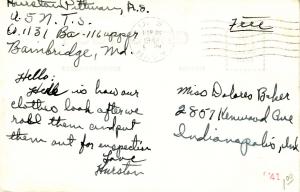 Hurston Pittman, A.S.
U.S.N.T.S.
Co. 1131 Ba-116 upper
Bainbridge, Md.
Free
Hello:
Here is how our
clothes look after we
roll them and put
them out for inspection
Love
Hurston
Miss Dolores Baker
2807 Kenwood Ave
Indianapolis, Ind